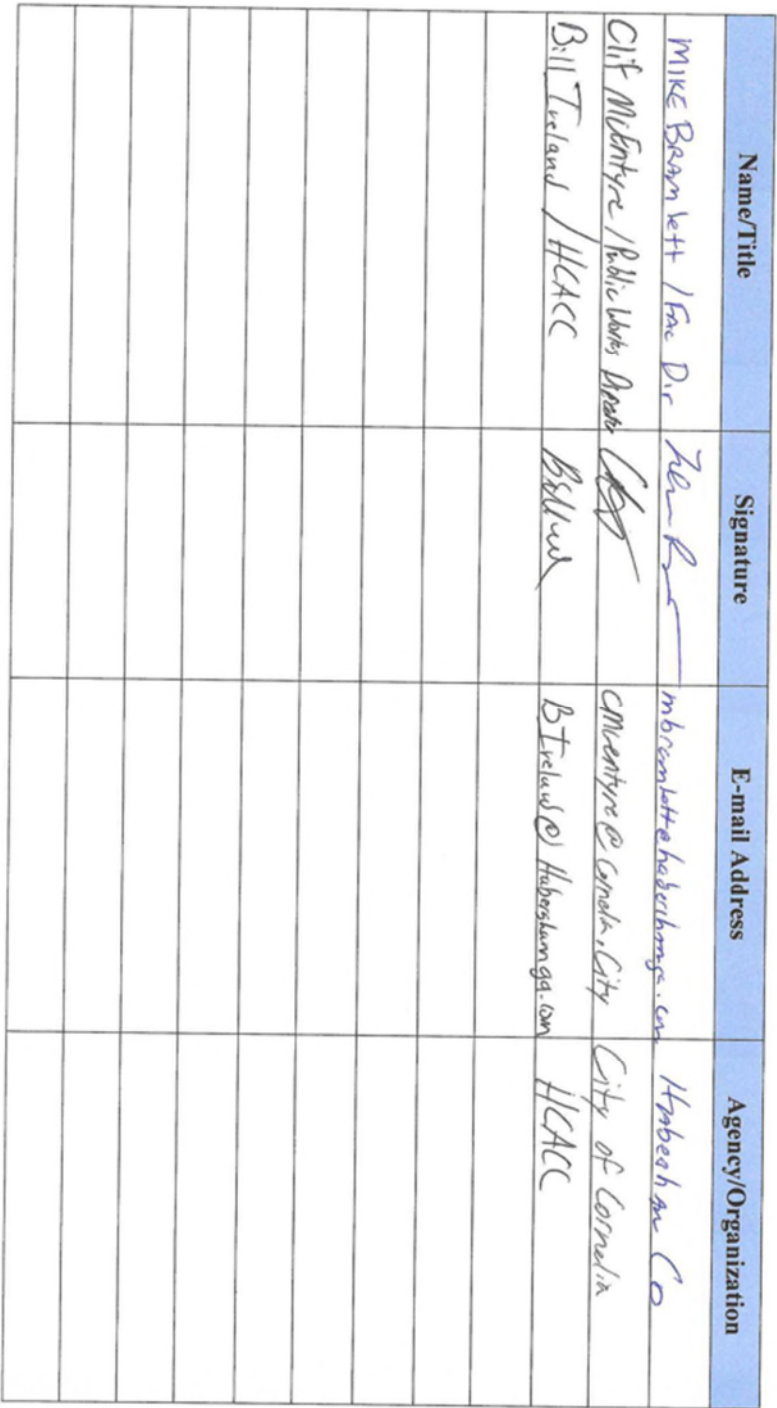 Name/Title Signature E-mail Address Agency/Organization
MIKE BRAMlett / FAC Dir mbramlett@habershamga.com Habersham Co
Clif McEntyre / Public Works Director cmcentyre@cornelia.city City of Cornelia
Bill Ireland / HCACC BIreland@Habershamga.com HCACC